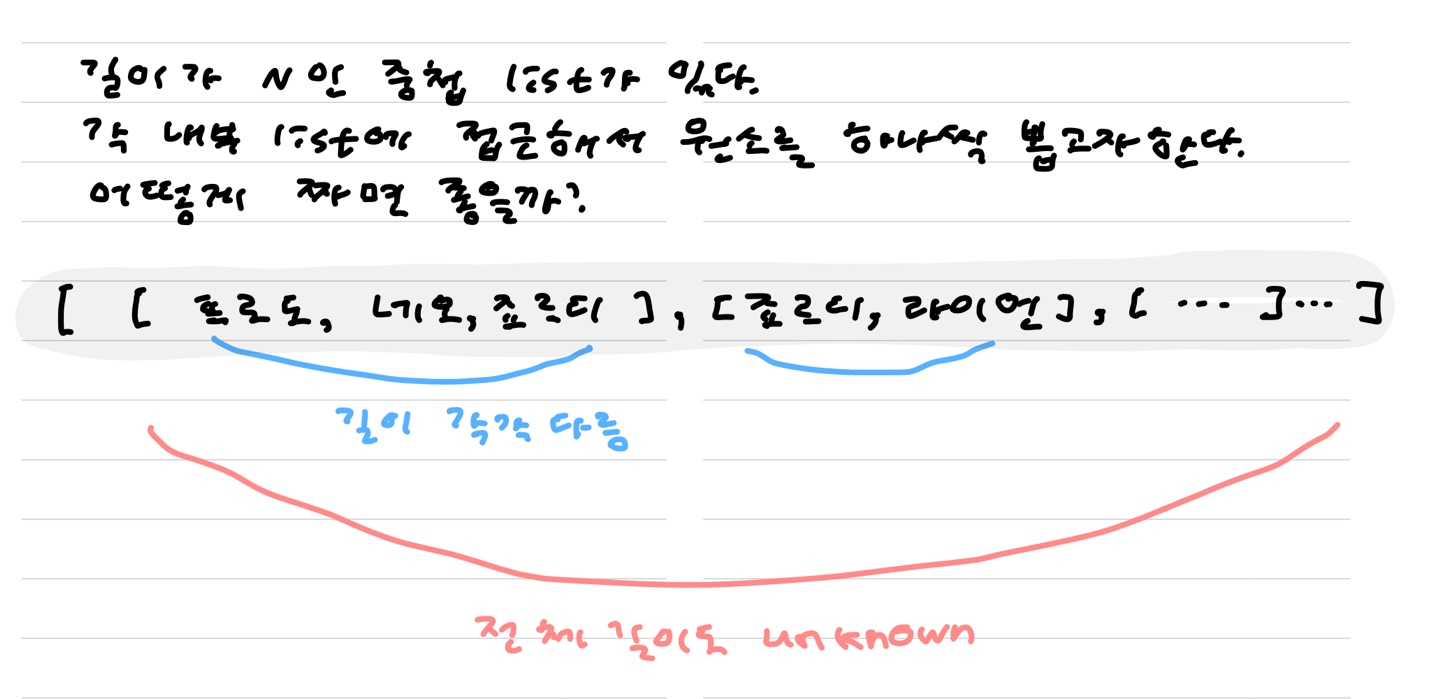 길이가 N인 중첩 list가 있다.
각 내부 list에 접근해서 원소를 하나씩 뽑고자한다.
어떻게 짜면 좋을까?
[ [ 프로도, 네오, 죠르디 ], [죠르디, 라이언], [ ... ]... ]
길이 각각 다름
전체 길이도 unknown